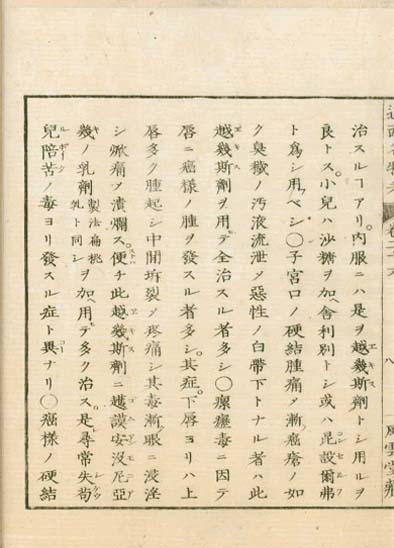 治スルヿアリ。内服ニハ是ヲ越幾斯劑トシ用ルヲ
良トス。小兒ハ沙糖ヲ加ヘ舎利別トシ或ハ昆設爾弗
ト爲シ用フベシ〇子宮口ノ硬結腫痛シ漸ク癌瘡ノ如
ク臭穢ノ汚液流泄シ惡性ノ白帶下トナル者ハ此
越幾斯劑ヲ用テ全治スル者多シ〇瘰癧毒ニ因テ
唇ニ癌樣ノ腫ヲ發スル者多シ。其症。下唇ヨリハ上
唇多ク腫起シ中間坼裂シ疼痛シ其毒漸ク眼ニ浸淫
シ焮痛シ潰爛ス。便チ此越幾斯劑ニ越謨安没尼亞
幾ノ乳劑製法扁桃乳ト同シヲ加ヘ用テ多ク治ス。是レ尋常失苟
兒陪苦ノ毒ヨリ發スル症ト異ナリ〇癌樣ノ硬結
八 風雲堂藏